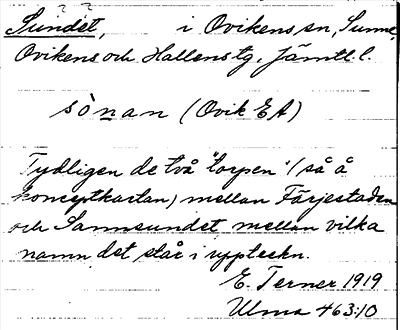 ? ?
Sundet, i Ovikens sn, Sunne,
Ovikens och Hallens tg, Jämtl. l.
sònan (Ovik EA)
Tydligen de två "torpen" (så å
konceptkartan) mellan Färjestaden
och Sannsundet mellan vilka
namn det står i uppteckn.
E. Terner 1919
Ulma 463:10